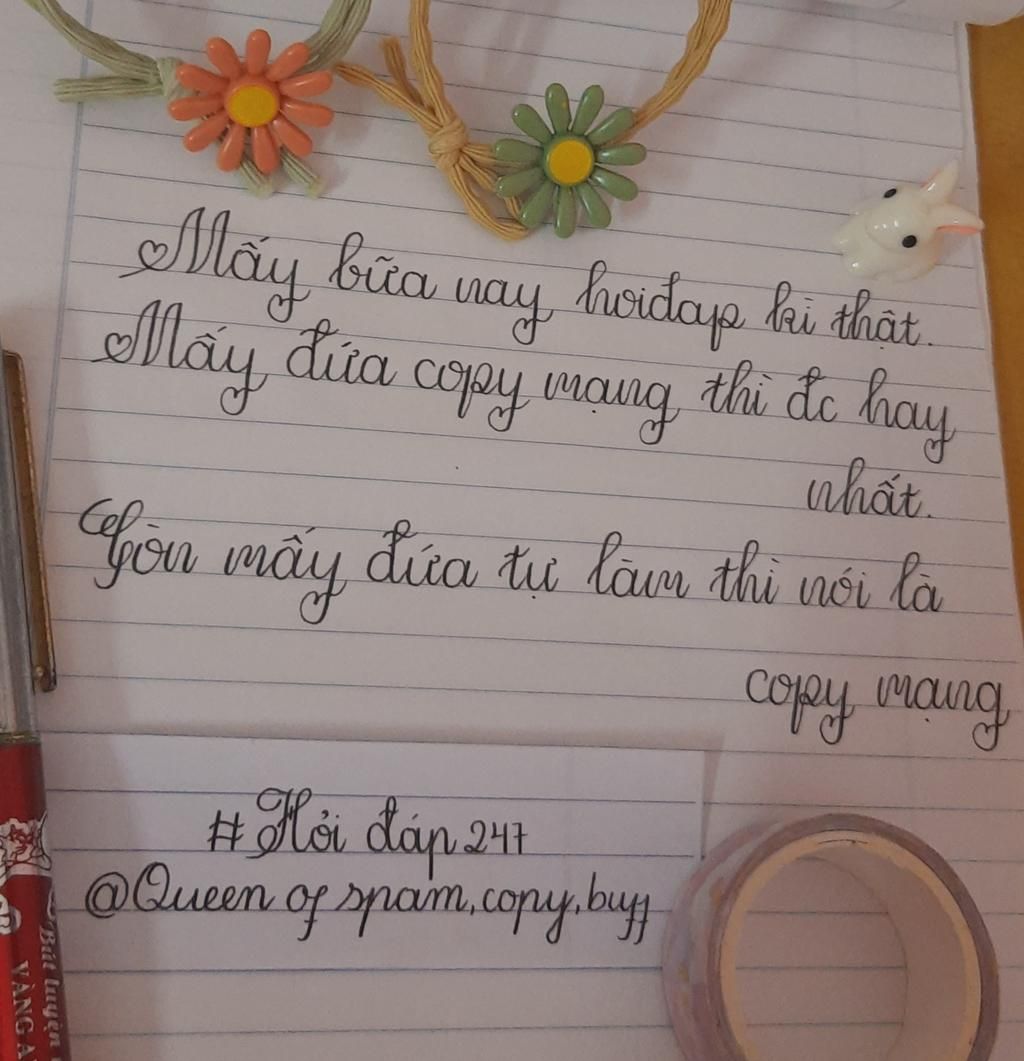 Mấy bữa nay hoidap kì thật.
Mấy đứa copy mạng thì đc hay
nhất.
Còn mấy đứa tự làm thì nói là
copy mạng
#Hỏi đáp 247
@Queen of spam,copy,buff
Bút luyện
VÀNG A